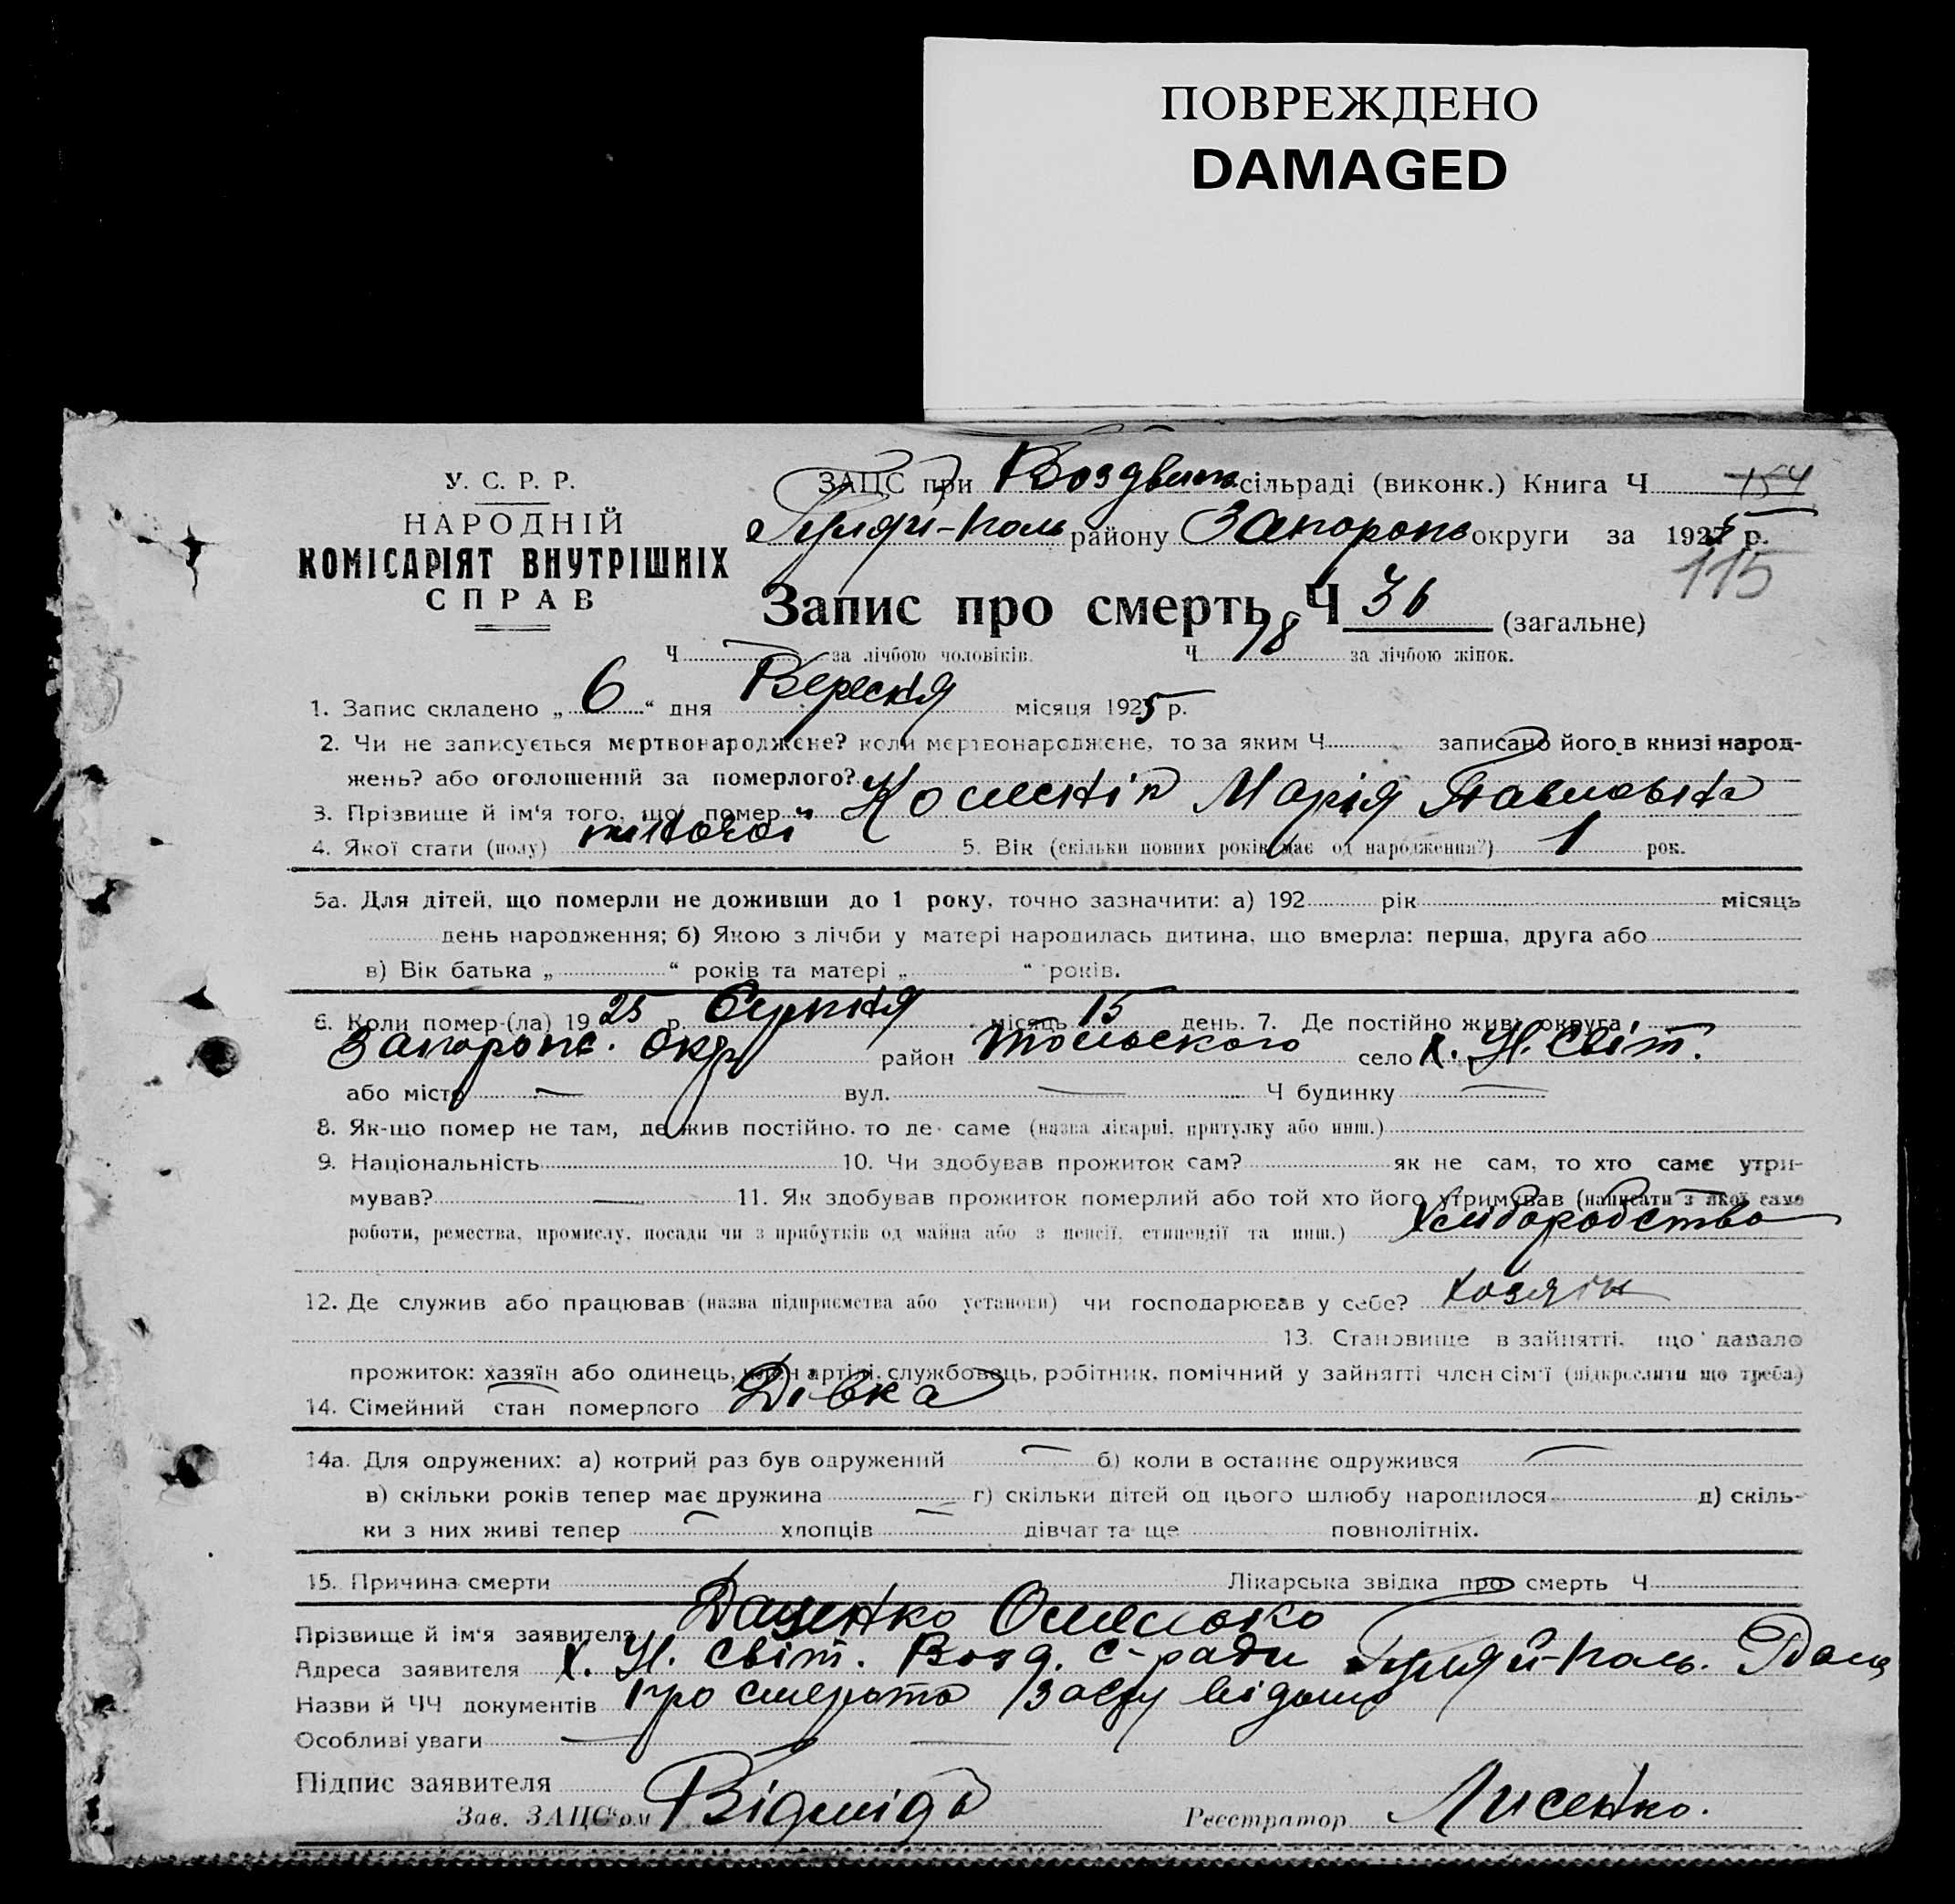 ПОВРЕЖДЕНО
DAMAGED
У. С. Р. Р.
НАРОДНІЙ
КОМІСАРІЯТ ВНУТРІШНІХ
СПРАВ
ЗАЦС при Воздвиж. сільраді (виконк.) Книга Ч 154
Гуляй-Поль району Запорожь округи за 1925 р.
115
Запис про смерть Ч 36 (загальне)
Ч за лічбою чоловіків. Ч 18 за лічбою жінок.
1. Запис складено „ 6 “ дня Вересня місяця 1925 р.
2. Чи не записується мертвонароджене? коли мертвонароджене, то за яким Ч записано його в книзі народ-
жень? або оголошений за померлого?
3. Прізвище й ім'я того, що помер Марія Павловна
4. Якої стати (полу) жіночої 5. Вік (скільки повних років має од народження?) 1 рок.
5а. Для дітей, що померли не доживши до 1 року, точно зазначити: а) 192 рік місяць
день народження; б) Якою з лічби у матері народилась дитина, що вмерла: перша, друга або
в) Вік батька „ “ років та матері „ “ років.
6. Коли помер-(ла) 1925 р. Серпня місяць 15 день. 7. Де постійно жив: округа
Запорож. окр район село х. Н. Світ.
або місто — вул. — Ч будинку —
8. Як-що помер не там, де жив постійно, то де саме (назва лікарні, притулку або инш.)
9. Національність 10. Чи здобував прожиток сам? як не сам, то хто саме утри-
мував? — 11. Як здобував прожиток померлий або той хто його утримував (написати з якої саме
роботи, ремества, промислу, посади чи з прибутків од майна або з пенсії, стипендії та инш.) Хліборобство
12. Де служив або працював (назва підприємства або установи) чи господарював у себе? хозяїн
13. Становище в зайнятті, що давало
прожиток: хазяїн або одинець, член артілі, службовець, робітник, помічний у зайнятті член сім'ї (підкреслити що треба)
14. Сімейний стан померлого Дівка
14а. Для одружених: а) котрий раз був одружений — б) коли в останнє одружився —
в) скільки років тепер має дружина г) скільки дітей од цього шлюбу народилося д) скіль-
ки з них живі тепер — хлопців — дівчат та ще повнолітніх.
15. Причина смерти Лікарська звідка про смерть Ч
Прізвище й ім'я заявителя Даценко Омелько
Адреса заявителя х. Н. Світ. Возд. С-ради Гуляй-Поль.
Назви й ЧЧ документів про смерть
Особливі уваги —
Підпис заявителя
Зав. ЗАЦС'ом Реєстратор Лисенко.